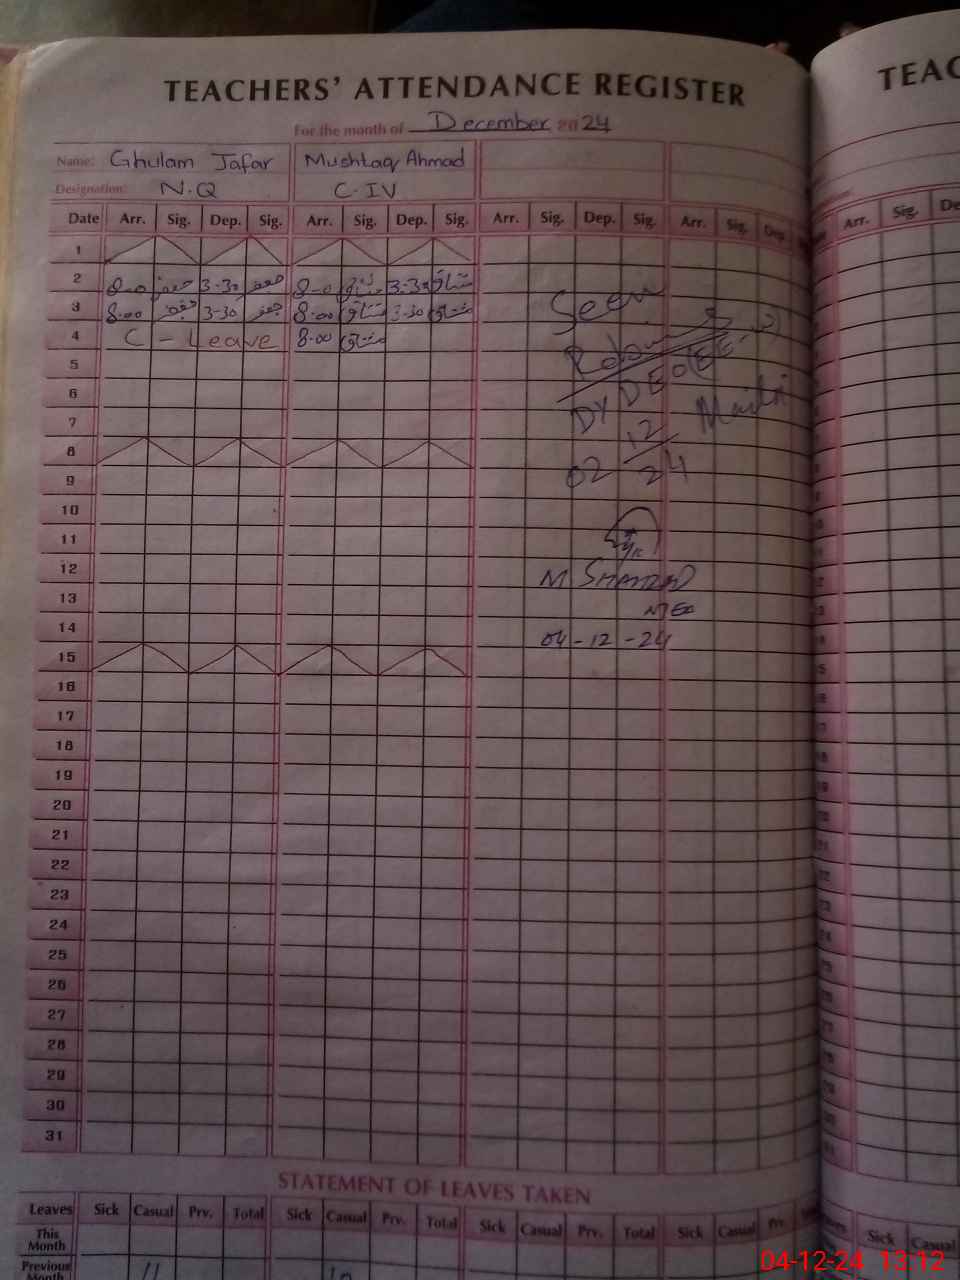 TEACHERS' ATTENDANCE REGISTER
TEAC
For the month of December 2024
Name: Ghulam Jafar Mushtaq Ahmad
Designation: N.Q C-IV
Date Arr. Sig. Dep. Sig. Arr. Sig. Dep. Sig. Arr. Sig. Dep. Sig. Arr. Sig. Dep. Arr. Sig. De
1
2 8-00 جعفر 3-30 جعفر 8-00 مشتاق 3-30 مشتاق
3 8-00 جعفر 3-30 جعفر 8-00 مشتاق 3-30 مشتاق
4 C - Leave 8-00 مشتاق
Seen
DY DEO (EE-
02 12/24
5
6
7
8
9
10
11
12
M SHAHZAD
13
14
04-12-24
15
16
17
18
19
20
21
22
23
24
25
26
27
28
29
30
31
STATEMENT OF LEAVES TAKEN
Leaves Sick Casual Prv. Total Sick Casual Prv. Total Sick Casual Prv. Total Sick Casual Prv. Sick Casual
This Month
Previous Month 11 10
04-12-24 13:12